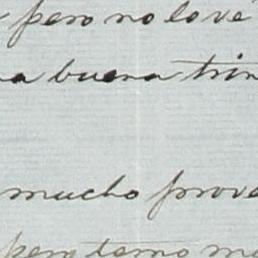 pero no lo vé
na buena trin
mucho prove
pero temo me